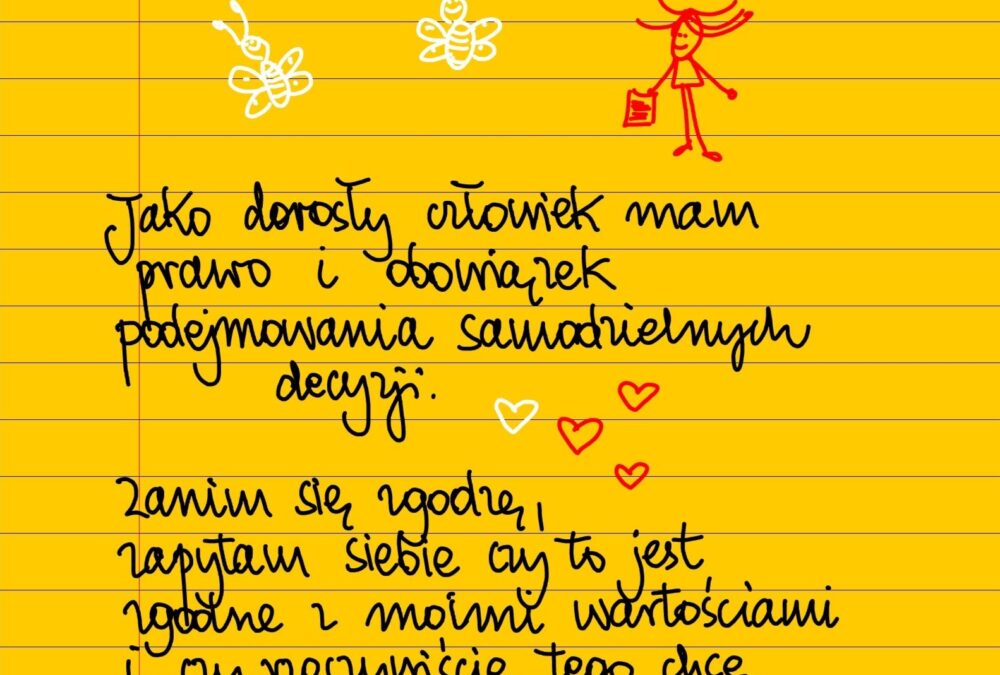 Jako dorosły człowiek mam
prawo i obowiązek
podejmowania samodzielnych
decyzji.
Zanim się zgodzę,
zapytam siebie czy to jest
zgodne z moimi wartościami
i czy rzeczywiście tego chcę